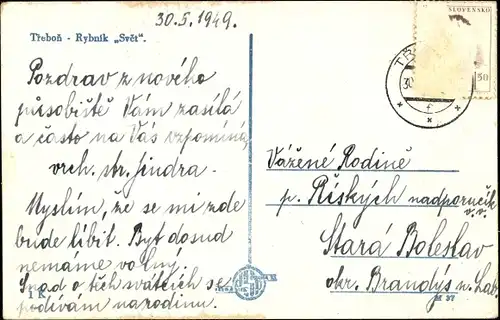 30.5.1949.
Třeboň - Rybník „Svět".
Pozdrav z nového
působiště Vám zasílá
a často na Vás vzpomíná
vrch. str. Jindra.
Myslím, že se mi zde
bude líbit. Byt dosud
nemáme volný.
Snad o těch svátcích se
podívám na rodinu.
1 K
SLOVENSKO
50
TŘ
30
Vážené Rodině
p. Říských nadporučík
v.v.
Stará Boleslav
okr. Brandýs n. Lab.
M 37